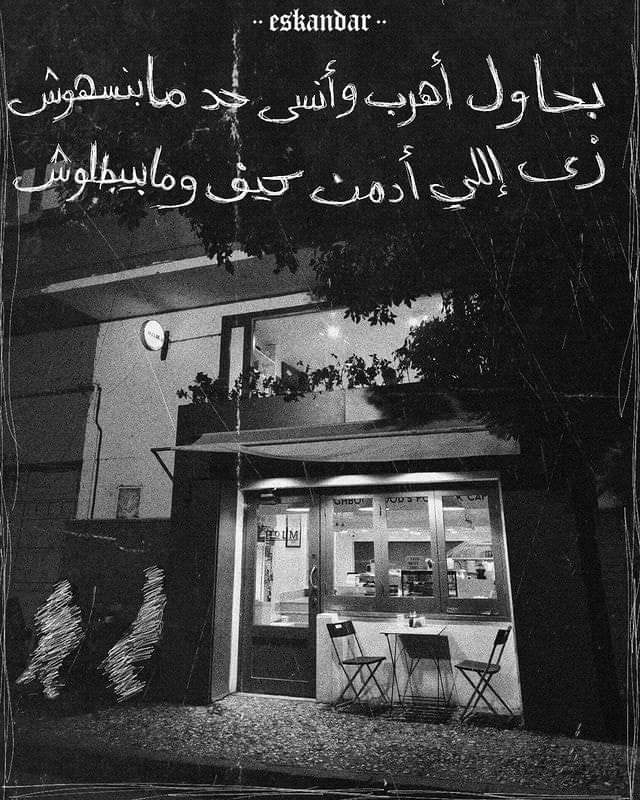 ·· eskandar ··
بحاول أهرب وأنسى حد مابنسهوش
زى إللي أدمن كيف ومابيبطلوش